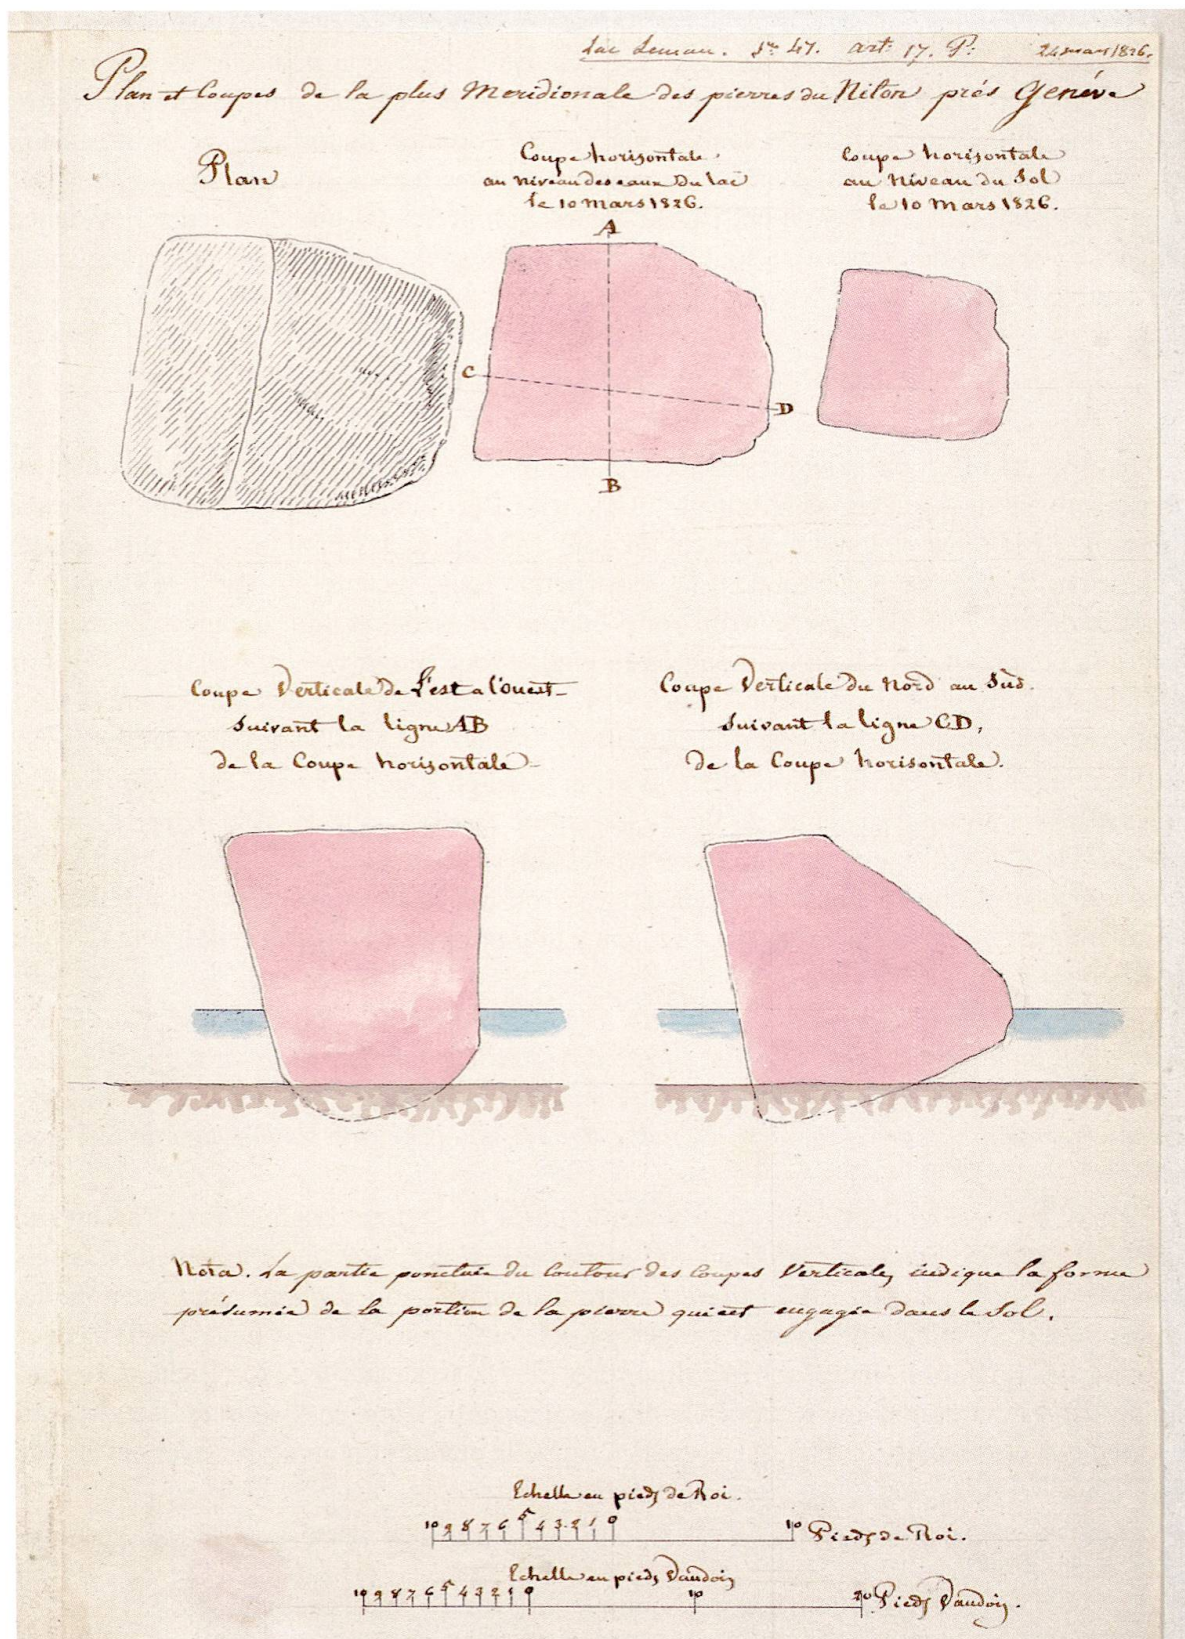 Lac Leman. Sn 47. art: 17. P: 24 mars 1826.
Plan et Coupes de la plus Meridionale des pierres du Niton près Genève
Plan
Coupe horisontale
au niveau des eaux Du lac
le 10 mars 1826.
Coupe horisontale
au Niveau du Sol
le 10 Mars 1826.
A
C
D
B
Coupe Verticale de l'est a l'ouest
Suivant la ligne AB
de la Coupe horisontale
Coupe Verticale du Nord au Sud.
Suivant la ligne CD,
de la Coupe horisontale.
Nota. La partie ponctuée du contour des coupes Verticales, indique la forme
présumée de la portion de la pierre qui est engagée dans le Sol.
Echelle en pieds de Roi.
10 9 8 7 6 5 4 3 2 1 0 10 Pieds de Roi.
Echelle en pieds Vaudois
10 9 8 7 6 5 4 3 2 1 0 10 20 Pieds Vaudois.